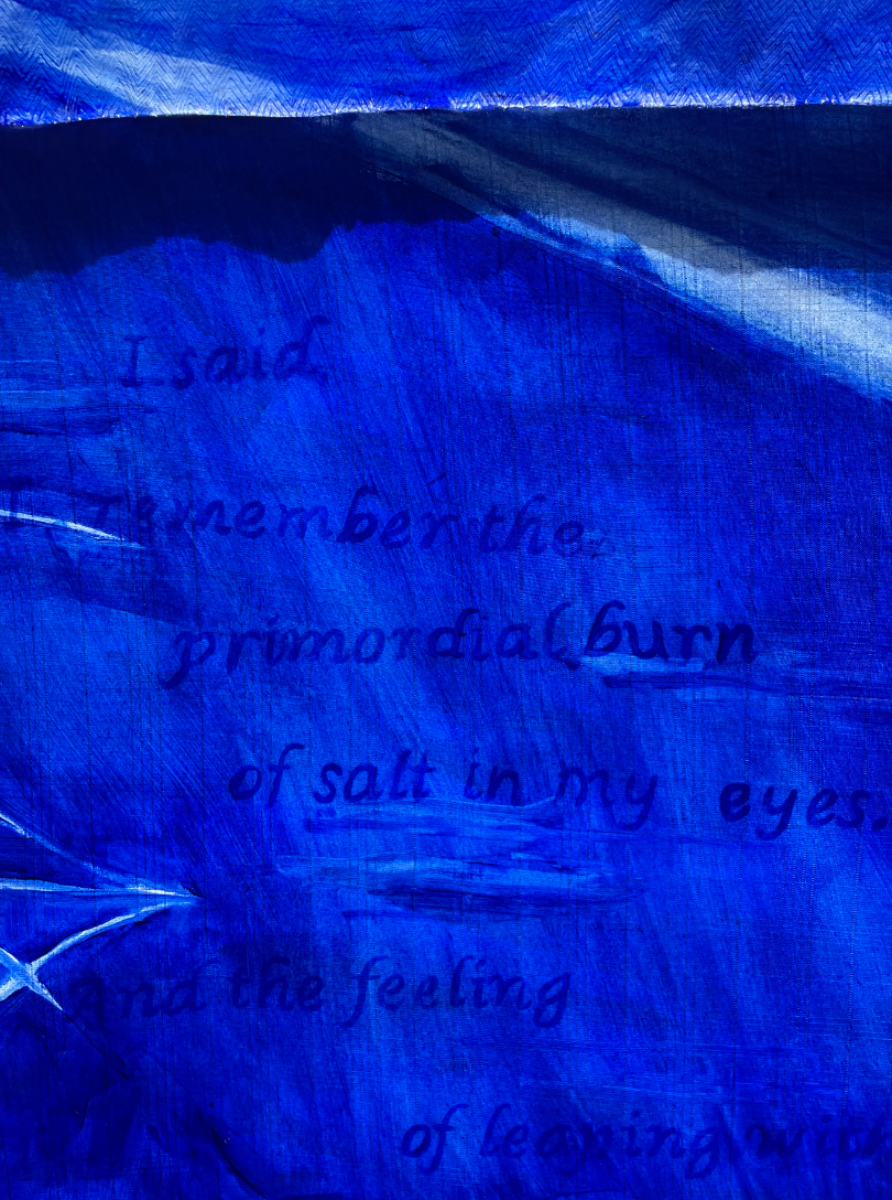 I said,
I remember the
primordial burn
of salt in my eyes.
And the feeling
of leaping with